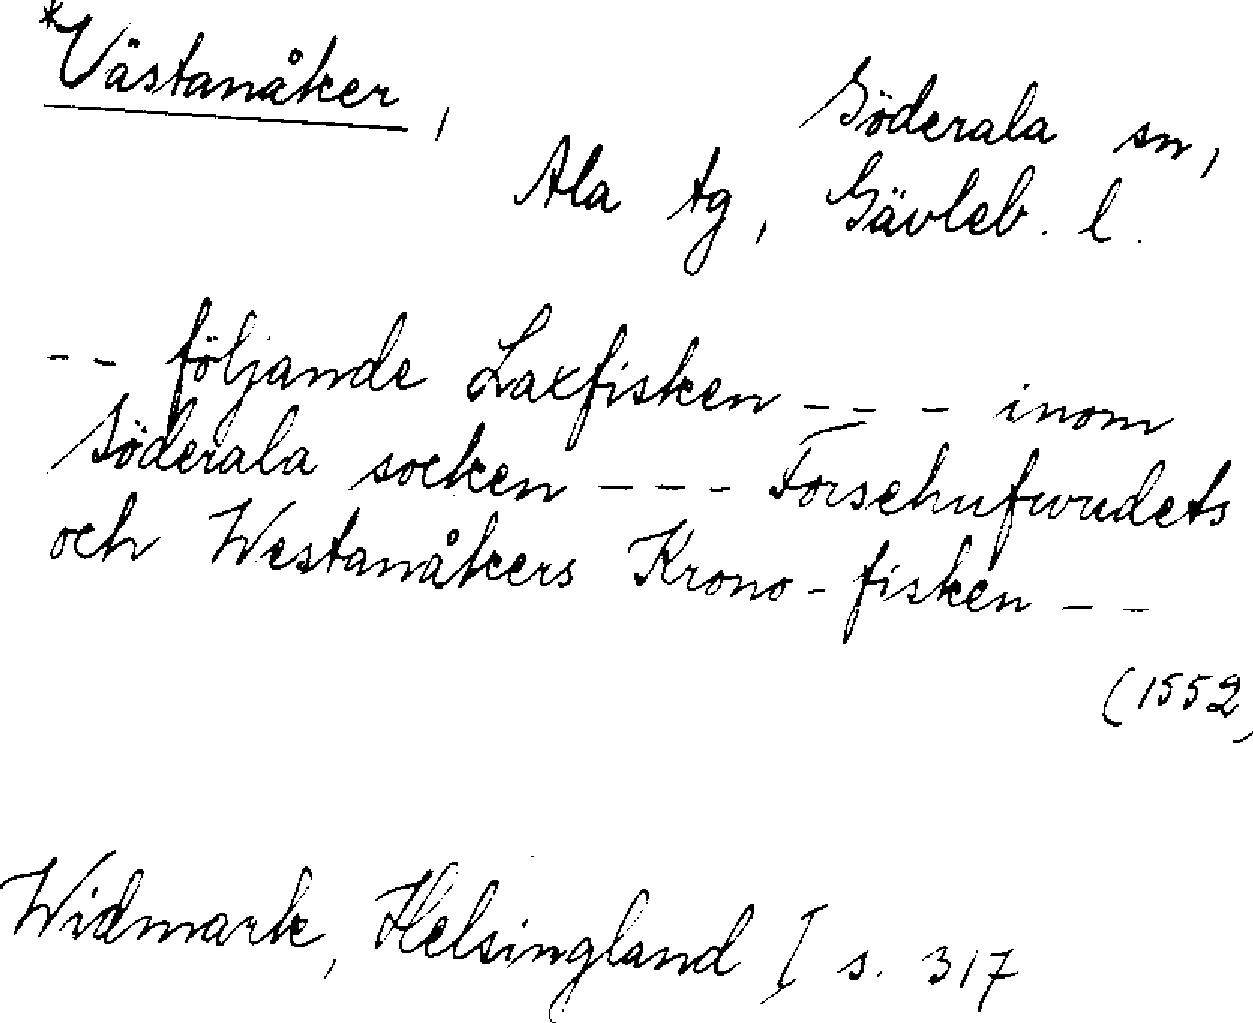 *Västanåker,
Söderala sn,
Ala tg, Gävleb. l.
-- följande Laxfisken --- inom
Söderala socken --- Forsehufwudets
och Westanåkers Krono-fisken --
(1552)
Widmark, Helsingland I s. 317